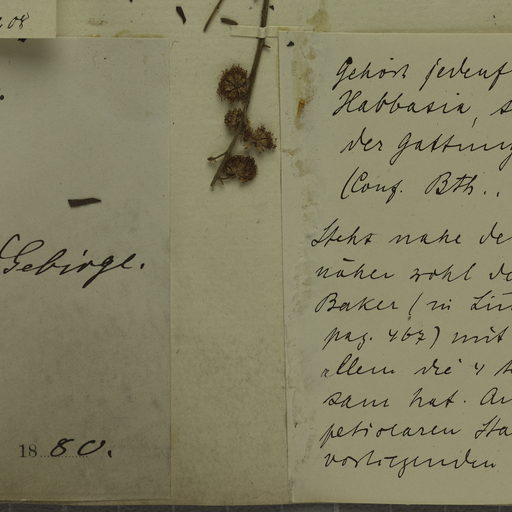 08
Gebirge.
1880.
Gehört jedenf
Habbasia, s
der Gattung
(Conf. Bth..
Steht nahe de
näher wohl de
Baker (in Lin
pag. 467) mit
allem die 4
sam hat. An
petiolaren Sta
vorliegenden